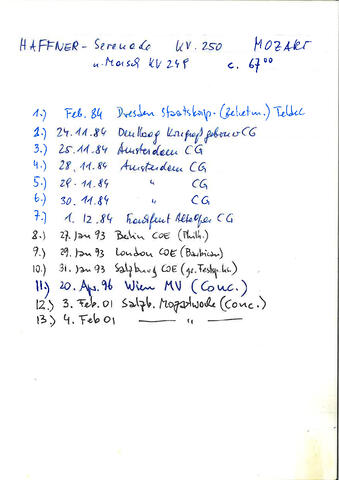 HAFFNER - Serenade KV. 250 MOZART
u. Marsch KV 249 c. 67'00
1.) Feb. 84 Dresden Staatskap. (Beheim.) Teldec
2.) 24.11.84 Den Haag Kongreßgebouw CG
3.) 25.11.84 Amsterdam CG
4.) 28.11.84 Amsterdam CG
5.) 29.11.84 " CG
6.) 30.11.84 " CG
7.) 1.12.84 Frankfurt Alte Oper CG
8.) 27. Jan 93 Berlin COE (Philh.)
9.) 29. Jan 93 London COE (Barbican)
10.) 31. Jan 93 Salzburg COE (gr. Festsp.hs.)
11.) 20. Apr. 96 Wien MV (Conc.)
12.) 3. Feb. 01 Salzb. Mozartwoche (Conc.)
13.) 4. Feb 01 — " —